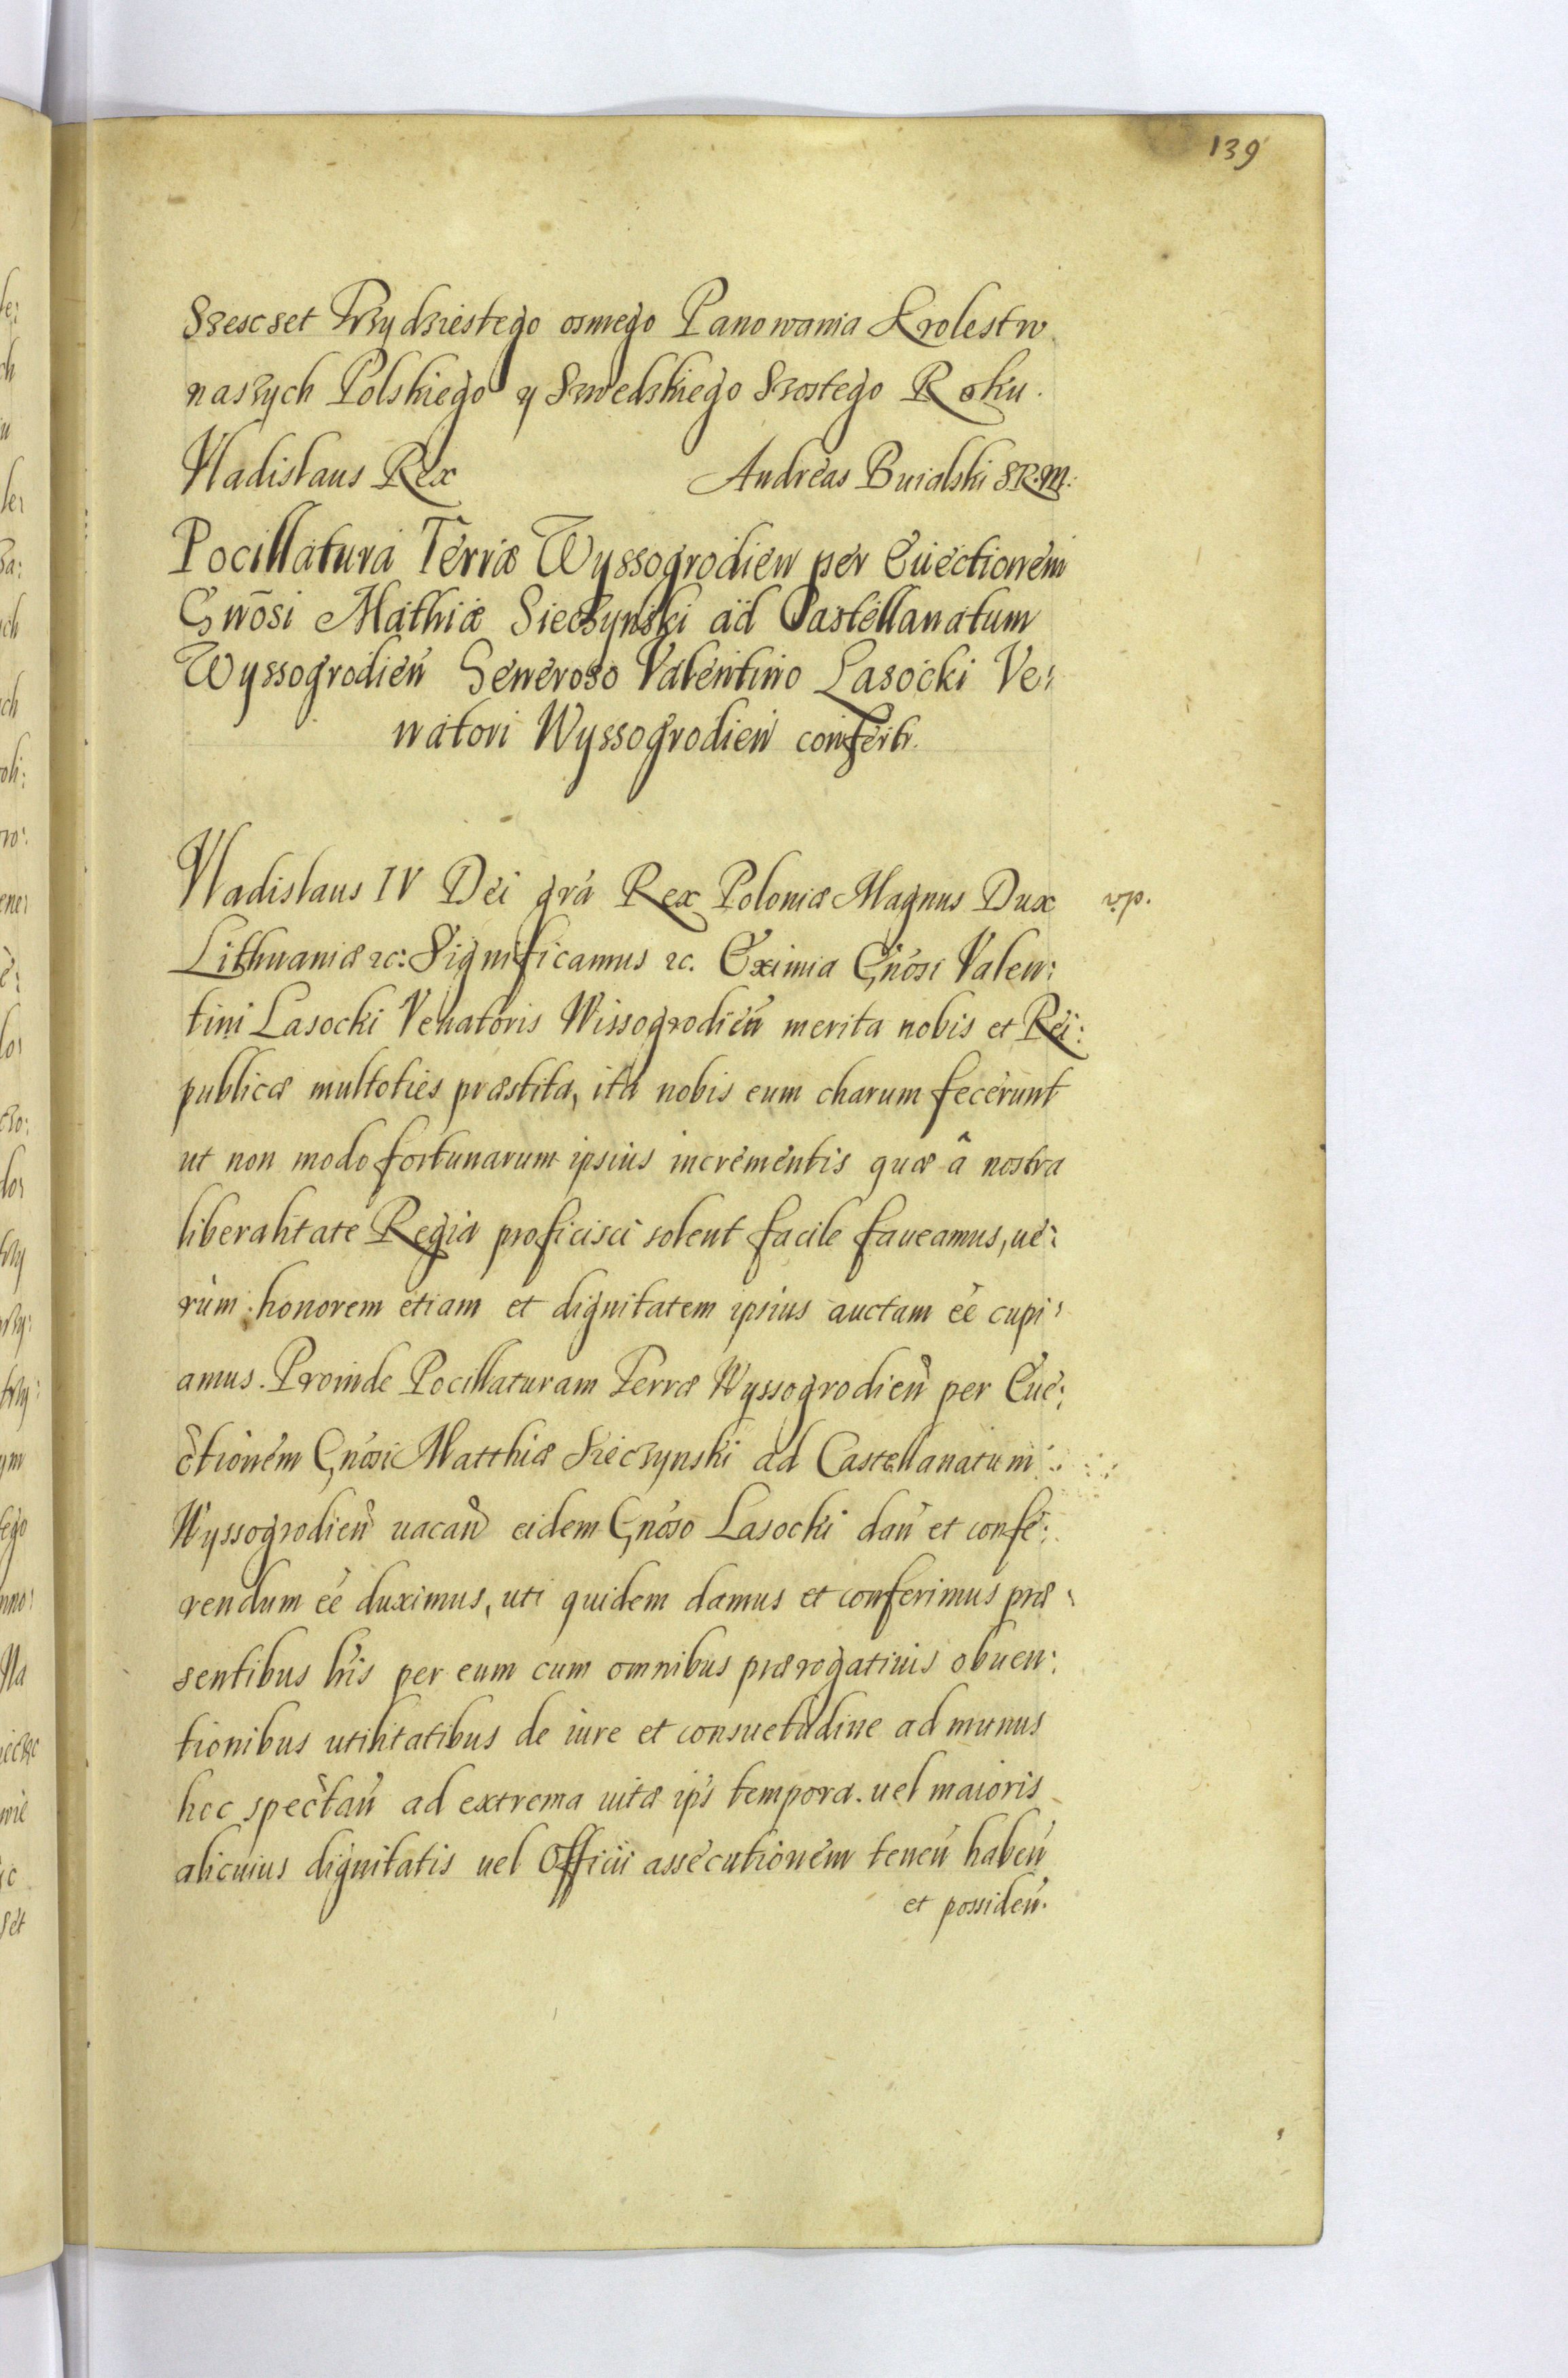 139
Szescset Trzydziestego osmego Panowania Krolestw
naszych Polskiego y Szwedzkiego Szostego Roku.
Vladislaus Rex Andreas Buialski SR.M.
Pocillatura Terræ Wyssogrodien per Euectionem
Gnosi Mathiæ Sieczynski ad Castellanatum
Wyssogrodien Generoso Valentino Lasocki Ve:
natori Wyssogrodien confertr.
Vladislaus IV Dei gra Rex Poloniæ Magnus Dux
Lithuaniæ &c: Significamus &c. Eximia Gnosi Valen:
tini Lasocki Venatoris Wissogrodien merita nobis et Rei:
publicæ multoties præstita, ita nobis eum charum fecerunt
ut non modo fortunarum ipsius incrementis quæ â nostra
liberalitate Regia proficisci solent facile faueamus, ue:
rùm honorem etiam et dignitatem ipsius auctam ee cupi:
amus. Proinde Pocillaturam Terræ Wyssogrodien per Eue:
ctionem Gnosi Matthiæ Sieczynski ad Castellanatum
Wyssogrodien uacan eidem Gnoso Lasocki dan et confe:
rendum ee duximus, uti quidem damus et conferimus præ:
sentibus his per eum cum omnibus prærogatiuis obuen:
tionibus utilitatibus de iure et consuetudine ad munus
hoc spectan ad extrema uitæ ips tempora. uel maioris
alicuius dignitatis uel Officii assecutionem tenen haben
et possiden.